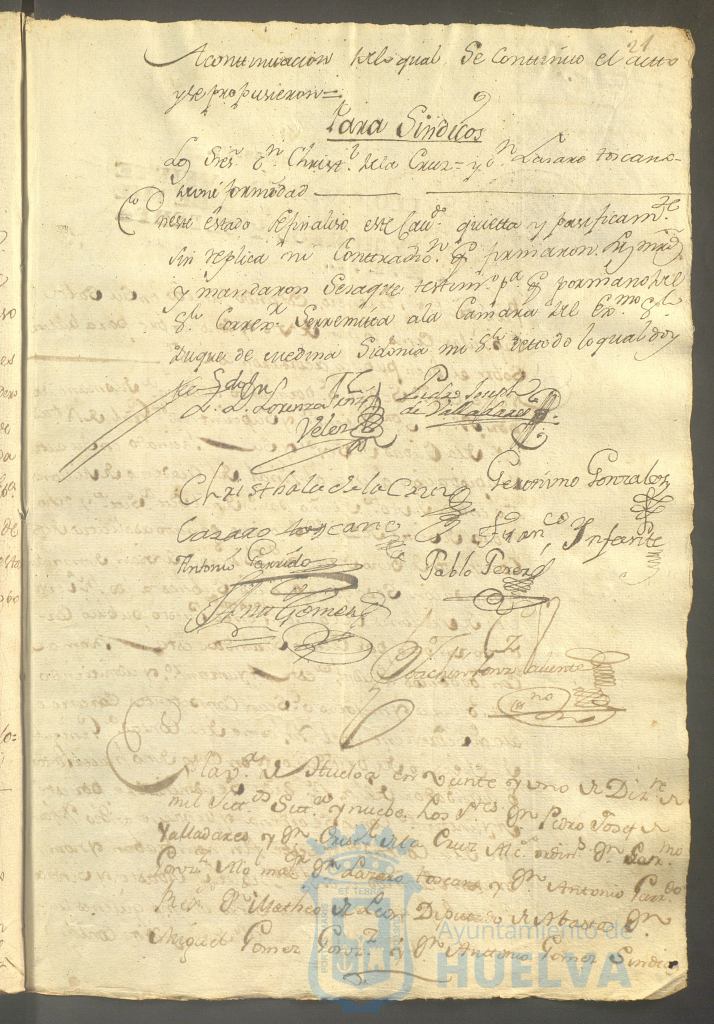 21
A continuacion delo qual se continuo el acto
y se propusieron=
Para Sindicos
Los Sres. Dn. Christ.l dela Cruz= y Dn. Lazaro toscano-
deconformidad
En este estado se finaliso este Cav.do quietta y pasificam.te
sin replica ni Contradic.n y firmaron
y mandaron Sesaque testim.o p.a q. por mano del
Sr. Correx.r Serremita ala Camara del Ex.mo Sr.
Duque de medina Sidonia mi Sr. de todo lo qual doy
fe
L. D. Lorenzo Velez
Pedro Joseph
de Valladares
Christhal de la Cruz
Geronimo Gonzalez
Lazaro toscano
Fran.co Infante
Antonio Garrido
Pablo Perez
Ant.o Gomez
Joachin
En la v.a de Huelva en veinte y uno de Diz.re de
mil sett.os Sett.a y nuebe. Los Sres. Dn. Pedro Josef de
Valladares y Dn. Crist.l de la Cruz Alc.s ordin.s Dn.
Gonz.z Alg.l ma.or Dn. Lazaro toscano y Dn. Antonio Garrido
Rex.s Dn. Matheo de Leon Diputado de Abasto, Dn.
Miguel Gomez Gonz.z y Dn. Antonio Gomez Sindico
Ayuntamiento de
HUELVA